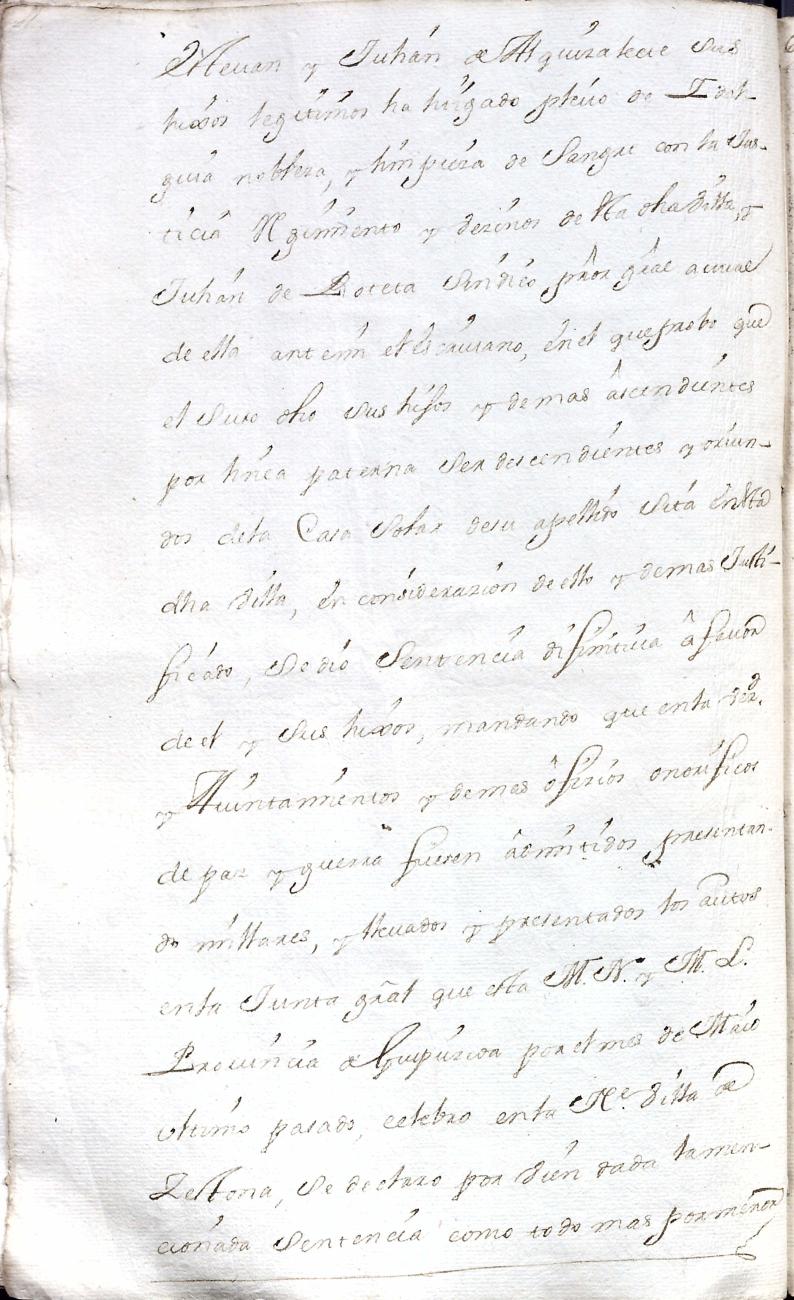 Estevan y Juhán de Aguiralecie Sus
hixos legítimos ha litigado pleito de Idal-
guia nobleza, y limpieza de Sangre con la Jus-
ticia Rgimiento y vezinos de Sta dha Villa, y
Juhán de Loteta Síndico pror gral actual
de ella antemi el Escrivano, en el que probo que
el Suio dho Sus hijos y demas âscendientes
por línea paterna Ser descendientes y oriun-
dos dela Casa Solar desu apellido Sita en Sta
dha Villa, en considerazion de ello y demas Justi-
ficado, Se dió Sentencia difinitiva â favor
de el y Sus hixos, mandando que enla vezd.
y Aiuntamientos y demas ôfizios onorificos
de paz y guerra fuesen âdmitidos presentan-
do millares, y llevados y presentados los autos
enla Junta gral que esta M. N. y M. L.
Provincia de Guipúzcoa por el mes de Maio
ultimo pasado, celebro enla Ne. Villa de
Zestona, Se declaro por vien dada lamen-
cionada Sentencia como todo mas pormenor